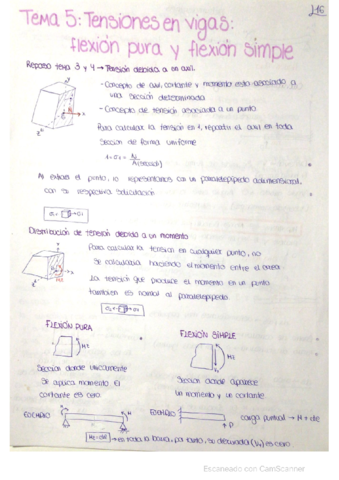 TEMA 5: TENSIONES EN VIGAS:
flexión pura y flexión simple
Repaso tema 3 y 4 → Tensión debida a un axil.
- Concepto de axil, cortante y momento esta asociado a
una sección determinada
- Concepto de tensión asociada a un punto
Para calcular la tensión en 1, repartir el axil en toda
Sección de forma uniforme
Al extraer el punto, lo representamos con un paralelepípedo adimensional,
con su respectiva solicitación
Distribución de tensión debido a un momento
Para calcular la tensión en cualquier punto, no
se calculará haciendo el momento entre el área.
La tensión que produce el momento en un punto
tambien es normal al paralelepípedo
FLEXIÓN PURA
FLEXIÓN SIMPLE
Sección donde únicamente
Se aplica momento el
cortante es cero
Sección donde aparece
un momento y un cortante
EJEMPLO
EJEMPLO
carga puntual → M = cte
P
Mz = cte → en toda la barra, por tanto, su derivada (Vy) es cero
Escaneado con CamScanner